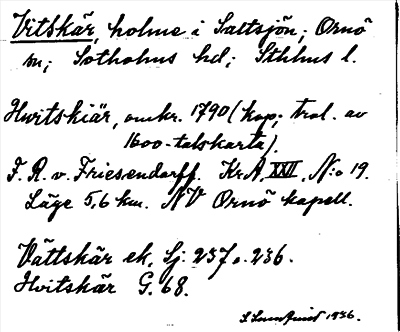 Vitskär, holme i Saltsjön; Ornö
sn; Sotholms hd; Sthlms l.
Hwitskiär, omkr. 1790 (kop; trol. av
1600-talskarta).
F. R. v. Friesendorff. Kr.A. XXVI, N:o 19.
Läge 5,6 km. NV Ornö kapell.
Vättskär ek, Sj. 237 o. 236.
Hvitskär G. 68.
1936.